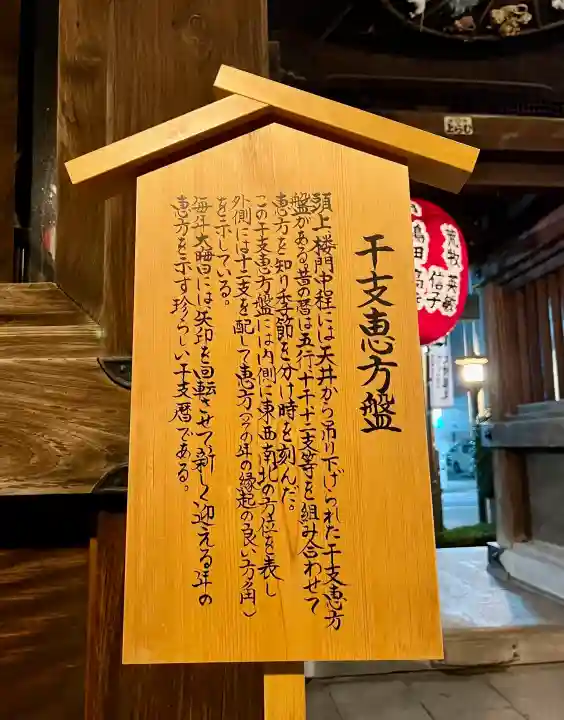 干支恵方盤
頭上楼門中程には天井から吊り下げられた干支恵方
盤がある昔の暦は五行、十干十二支等を組み合わせて
恵方を知り季節を分け時を刻んだ。
この干支恵方盤には内側に東西南北の方位を表し
外側には十二支を配して恵方(その年の縁起の良い方角)
を示している。
毎年大晦日には矢印を回転させて新しく迎える年の
恵方を示す珍らしい干支暦である。
荒牧 英敏
信子